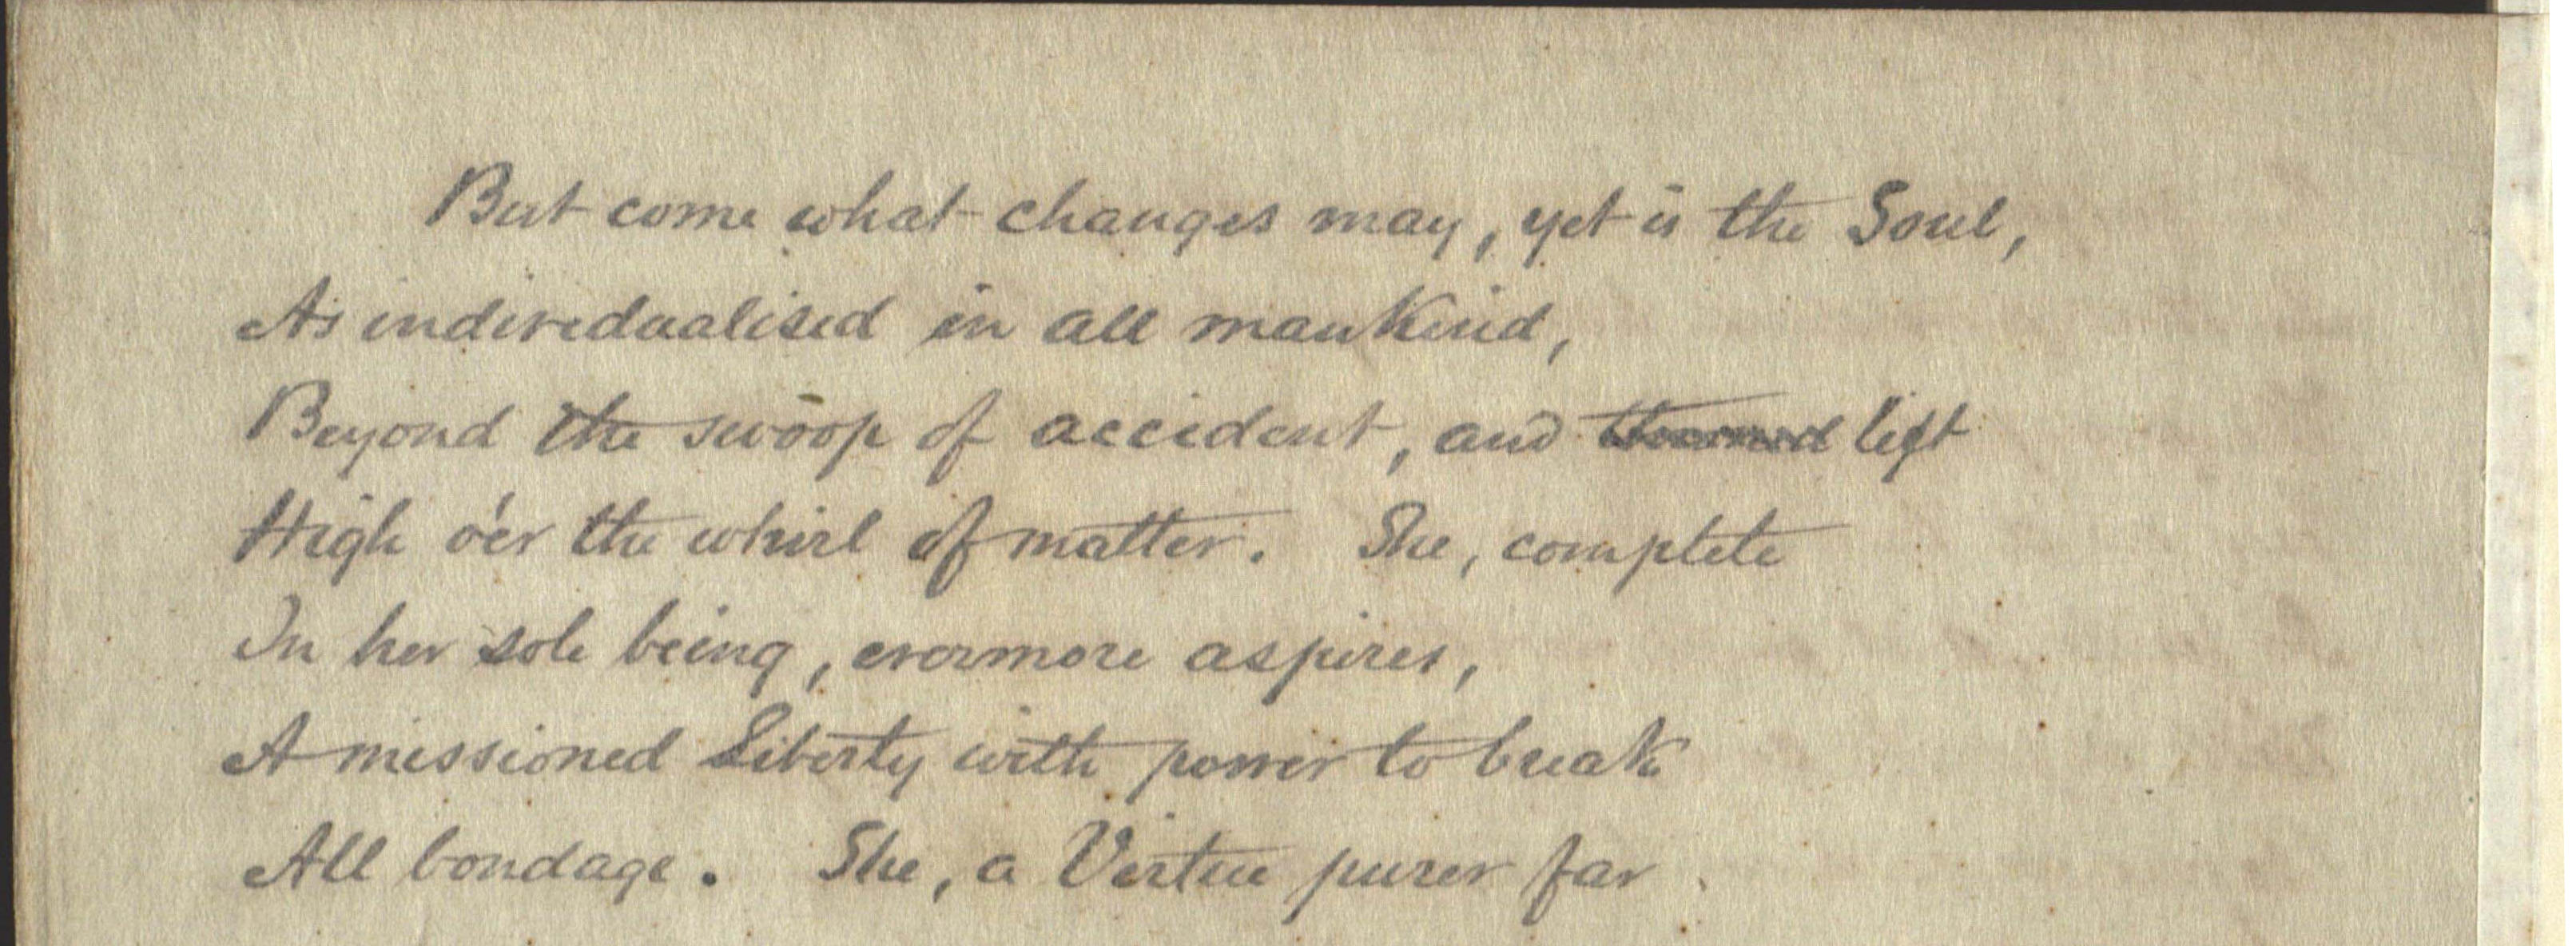 But come what changes may, yet is the Soul,
As individualised in all mankind,
Beyond the swoop of accident, and left
High o'er the whirl of matter. She, complete
In her sole being, evermore aspires,
A missioned Liberty with power to break
All bondage. She, a Virtue purer far